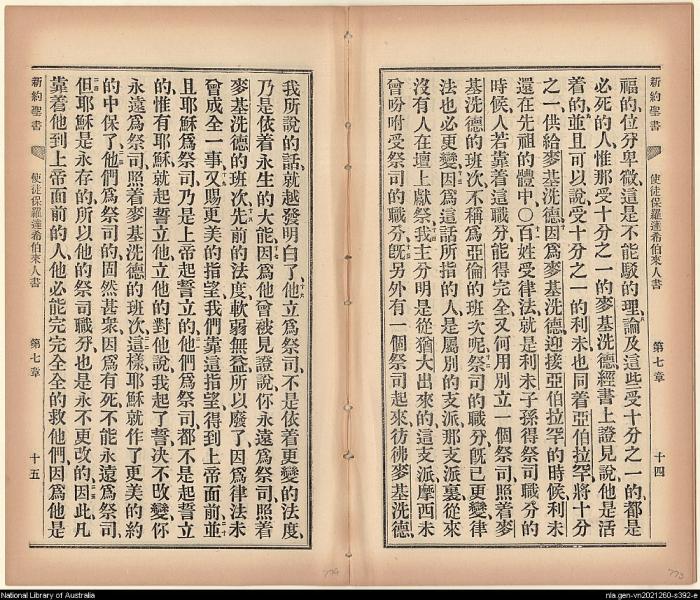 新約聖書
使徒保羅達希伯來人書
第七章
十四
福的位分卑微、這是不能駁的理、論及這些受十分之一的、都是
必死的人、惟那受十分之一的麥基洗德、經書上證見說、他是活
着的、並且可以說受十分之一的利未、也同着亞伯拉罕、將十分
之一、供給麥基洗德、因爲麥基洗德迎接亞伯拉罕的時候、利未
還在先祖的體中、○百姓受律法、就是利未子孫得祭司職分的
時候、人若靠着這職分能得完全、又何用別立一個祭司、照着麥
基洗德的班次、不稱爲亞倫的班次呢、祭司的職分旣已更變、律
法也必更變、因爲這話所指的人、是屬別的支派、那支派裏從來
沒有人在壇上獻祭、我主分明是從猶大出來的、這支派摩西未
曾吩咐受祭司的職分、旣另外有一個祭司起來、彷彿麥基洗德、
我所說的話、就越發明白了、他立爲祭司、不是依着更變的法度、
乃是依着永生的大能、因爲他曾被見證說、你永遠爲祭司、照着
麥基洗德的班次、先前的法度、軟弱無益、所以廢了、因爲律法未
曾成全一事、又賜更美的指望、我們靠這指望、得到上帝面前、並
且耶穌爲祭司、乃是上帝起誓立的、他們爲祭司、都不是起誓立
的、惟有耶穌、就起誓立他、立他的對他說、我起了誓、決不改變、你
永遠爲祭司、照着麥基洗德的班次、這樣、耶穌就作了更美的約
的中保了、他們爲祭司的、固然甚衆、因爲有死、不能永遠爲祭司、
但耶穌是永存的、所以他的祭司職分、也是永不更改的、因此凡
靠着他到上帝面前的人、他必能完完全全的救他們、因爲他是
新約聖書
使徒保羅達希伯來人書
第七章
十五
774
773
National Library of Australia
nla.gen-vn2021260-s392-e